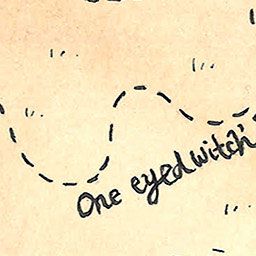 One eyed witch